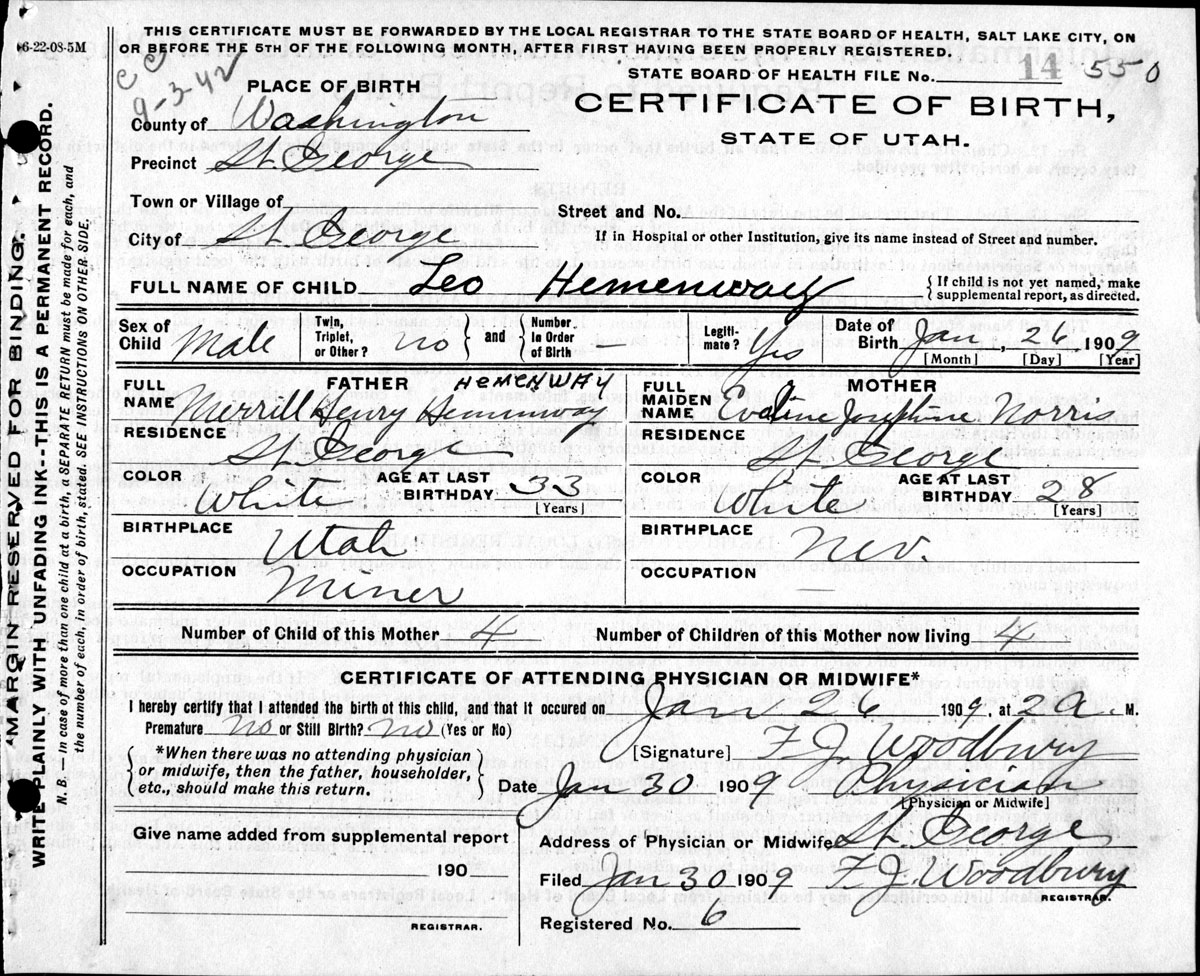 6-22-08-5M
THIS CERTIFICATE MUST BE FORWARDED BY THE LOCAL REGISTRAR TO THE STATE BOARD OF HEALTH, SALT LAKE CITY, ON
OR BEFORE THE 5TH OF THE FOLLOWING MONTH, AFTER FIRST HAVING BEEN PROPERLY REGISTERED.
STATE BOARD OF HEALTH FILE No. 14 550
CC
9-3-42
CERTIFICATE OF BIRTH,
STATE OF UTAH.
PLACE OF BIRTH
County of Washington
Precinct St. George
Town or Village of
Street and No.
City of St. George
If in Hospital or other Institution, give its name instead of Street and number.
FULL NAME OF CHILD Leo Hemenway
{ If child is not yet named, make
supplemental report, as directed.
Sex of Child Male
Twin, Triplet, or Other? no } and { Number In Order of Birth
Legiti- mate? Yes
Date of Birth Jan, 26, 1909
[Month] [Day] [Year]
FATHER
HEMENWAY
FULL NAME Merrill Henry Hemenway
RESIDENCE St. George
COLOR White
AGE AT LAST BIRTHDAY 33
[Years]
BIRTHPLACE Utah
OCCUPATION Miner
MOTHER
FULL MAIDEN NAME Eveline Josephine Norris
RESIDENCE St. George
COLOR White
AGE AT LAST BIRTHDAY 28
[Years]
BIRTHPLACE Nev.
OCCUPATION —
Number of Child of this Mother 4
Number of Children of this Mother now living 4
CERTIFICATE OF ATTENDING PHYSICIAN OR MIDWIFE*
I hereby certify that I attended the birth of this child, and that it occured on Jan 26 1909, at 2 a. M.
Premature no or Still Birth? no (Yes or No)
{ *When there was no attending physician
or midwife, then the father, householder,
etc., should make this return. }
[Signature] F. J. Woodbury
Date Jan 30 1909 Physician
[Physician or Midwife]
Give name added from supplemental report
190
REGISTRAR.
Address of Physician or Midwife St. George
Filed Jan 30 1909 F. J. Woodbury
REGISTRAR.
Registered No. 6
MARGIN RESERVED FOR BINDING.
WRITE PLAINLY WITH UNFADING INK---THIS IS A PERMANENT RECORD.
N. B. — In case of more than one child at a birth, a SEPARATE RETURN must be made for each, and
the number of each, in order of birth, stated. SEE INSTRUCTIONS ON OTHER SIDE.